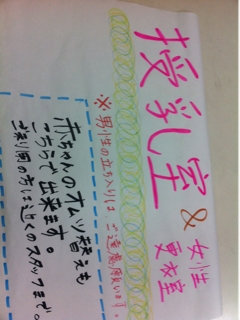 授乳室
& 女性
更衣室
※男性の立ち入りはご遠慮願います。
赤ちゃんのオムツ替えも
こちらで出来ます。
ご利用の方はお近くのスタッフまで。